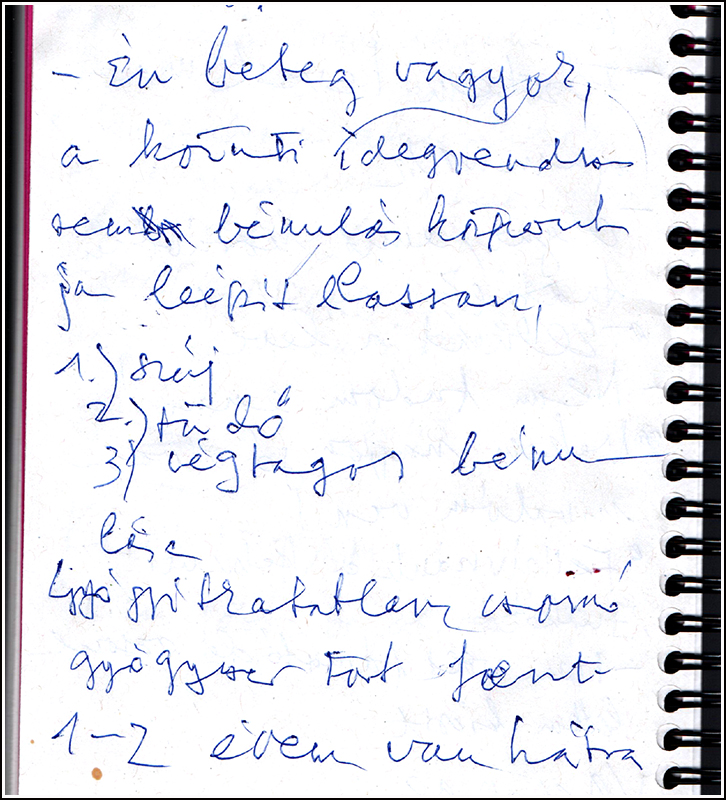 - Én beteg vagyok,
a központi idegrendsze
bénulás központ
ja leépít lassan,
1.) száj
2.) tüdő
3) végtagok bénu
lása
gyógyíthatatlan csomó
gyógyszer tart fent
1-2 évem van hátra